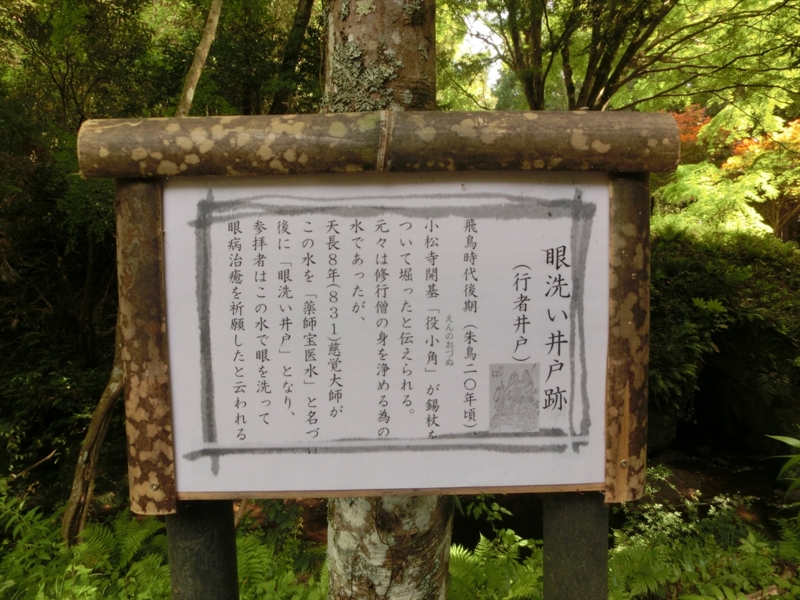 眼洗い井戸跡
(行者井戸)
飛鳥時代後期 (朱鳥二〇年頃)、
小松寺開基「役小角」が錫杖を
えんのおづぬ
ついて堀ったと伝えられる。
元々は修行僧の身を浄める為の
水であったが、
天長8年(831)慈覚大師が
この水を「薬師宝医水」と名づ
後に「眼洗い井戸」となり、
参拝者はこの水で眼を洗って
眼病治癒を祈願したと云われる